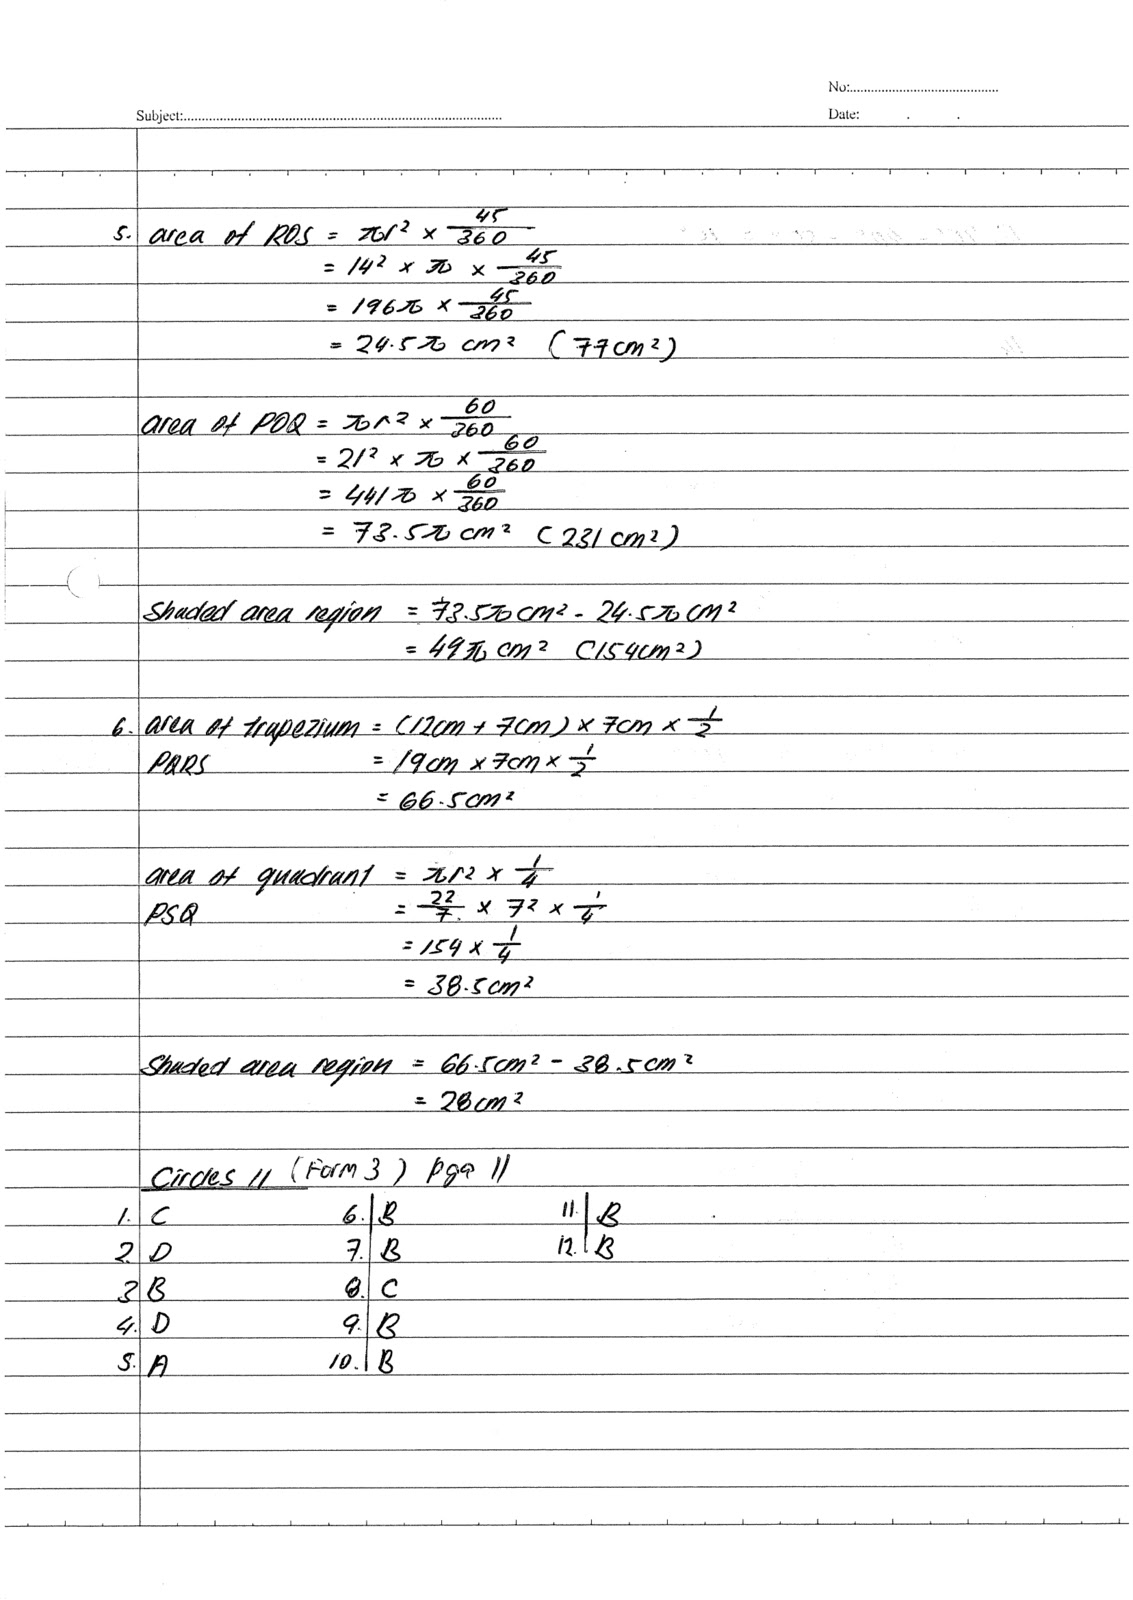 No:
Subject:
Date:
5. area of ROS = πr² × 45/360
= 14² × π × 45/360
= 196π × 45/360
= 24.5π cm² (77cm²)
area of POQ = πr² × 60/360
= 21² × π × 60/360
= 441π × 60/360
= 73.5π cm² (231cm²)
Shaded area region = 73.5π cm² - 24.5π cm²
= 49π cm² (154cm²)
6. area of trapezium = (12cm + 7cm) × 7cm × 1/2
PQRS = 19cm × 7cm × 1/2
= 66.5cm²
area of quadrant = πr² × 1/4
PSQ = 22/7 × 7² × 1/4
= 154 × 1/4
= 38.5cm²
Shaded area region = 66.5cm² - 38.5cm²
= 28cm²
Circles 11 (Form 3) 11
1. C 6. B 11. B
2. D 7. B 12. B
3 B 8. C
4. D 9. B
5. A 10. B